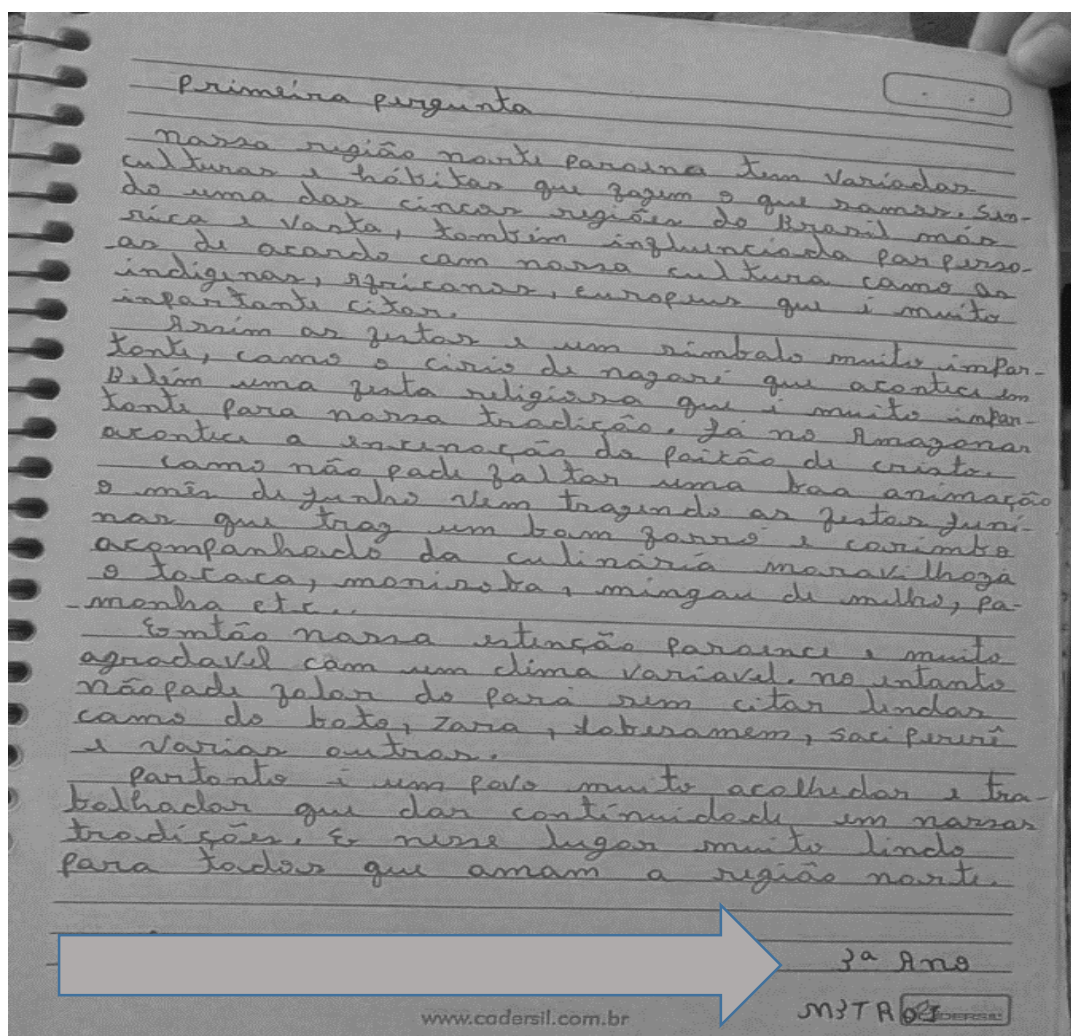 Primeira pergunta
nossa região norte paraena tem variadas
culturas e hábitos que fazem o que somos. Sen-
do uma das cincos regiões do Brasil más
rica e vasta, também influenciada por perso-
as de acordo com nossa cultura como os
indiginas, Africanos, europeus que é muito
inportante citar.
Assim as festas e um simbolo muito impor-
tante, como o cirio de nazaré que acontece em
Belém uma festa religiosa que é muito impor-
tante para nossa tradição. Já no Amazonas
acontece a encenação da paixão de cristo.
como não pade faltar uma boa animação
o mês de junho vem trazendo as festas juni-
nas que traz um bom forró e carimbo
acompanhado da culinária maravilhoza
o tacaca, manisoba, mingau de milho, pa-
monha etc..
Emtão nossa estenção paraence e muito
agradavel com um clima variavel. no entanto
não pade falar do pará sem citar lindas
como do boto, Iara, lobesomem, saci pererê
e varias outras.
Portanto é um povo muito acolhedor e tra-
balhador que dar continuidade em nossas
tradições. E nesse lugar muito lindo
para todos que amam a região norte.
3ª Ano
M3TR
CADERSIL
www.cadersil.com.br